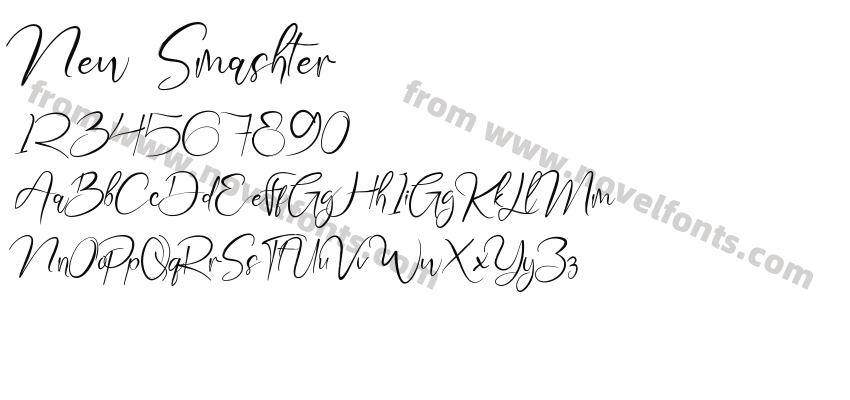 New Smashter
1234567890
AaBbCcDdEeFfGgHhIiGgKkLlMm
NnOoPpQqRrSsTtUuVvWwXxYyZz
from www.novelfonts.com
from www.novelfonts.com